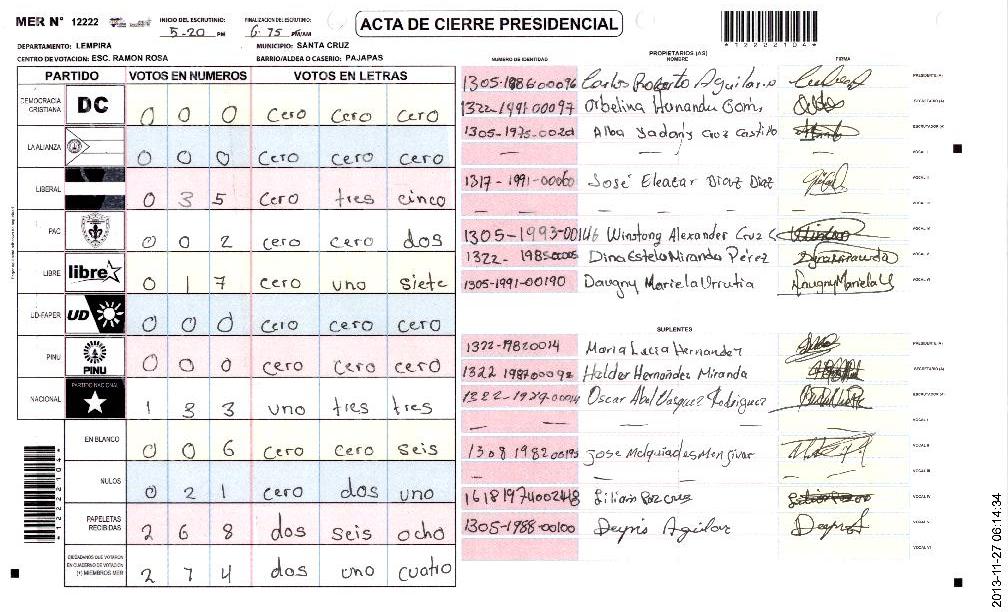 MER N° 12222
INICIO DEL ESCRUTINIO:
5-20 PM
FINALIZACION DEL ESCRUTINIO:
6:75 PM/AM
ACTA DE CIERRE PRESIDENCIAL
*12222104*
DEPARTAMENTO: LEMPIRA
MUNICIPIO: SANTA CRUZ
CENTRO DE VOTACION: ESC. RAMON ROSA
BARRIO/ALDEA O CASERIO: PAJAPAS
PARTIDO VOTOS EN NUMEROS VOTOS EN LETRAS
DEMOCRACIA CRISTIANA DC 0 0 0 cero cero cero
LA ALIANZA 0 0 0 cero cero cero
LIBERAL 0 3 5 cero tres cinco
PAC 0 0 2 cero cero dos
LIBRE libre 0 1 7 cero uno siete
UD-FAPER UD 0 0 0 cero cero cero
PINU PINU 0 0 0 cero cero cero
NACIONAL PARTIDO NACIONAL 1 3 3 uno tres tres
EN BLANCO 0 0 6 cero cero seis
NULOS 0 2 1 cero dos uno
PAPELETAS RECIBIDAS 2 6 8 dos seis ocho
CIUDADANOS QUE VOTARON EN CUADERNO DE VOTACION (+) MIEMBROS MER 2 7 4 dos uno cuatro
*12222104*
PROPIETARIOS (AS)
NUMERO DE IDENTIDAD NOMBRE FIRMA
1305-1986-00096 Carlos Roberto Aguilar PRESIDENTE (A)
1322-1991-00097 Orbelina SECRETARIO (A)
1305-1975-0020 Alba Yadony Cruz Castillo ESCRUTADOR (A)
— — — VOCAL I
1317-1991-00060 José Eleazar Diaz Diaz VOCAL II
— — — VOCAL III
1305-1993-00146 Winstong Alexander Cruz VOCAL IV
1322-1985-00005 Dina Estela Miranda Pérez VOCAL V
1305-1991-00190 Daugny Mariela Urrutia Daugny Mariela U VOCAL VI
SUPLENTES
1322-19820014 Maria Lucia Hernandez PRESIDENTE (A)
1322 1987 00092 Helder Hernández Miranda SECRETARIO (A)
Oscar Abel Vasquez Rodriguez ESCRUTADOR (A)
— — — VOCAL I
1308 1982 00195 Jose Melquiades Menjivar VOCAL II
— — — VOCAL III
1618197400248 Lilian VOCAL IV
1305-1988-00100 Deyris Aguilar VOCAL V
VOCAL VI
2013-11-27 06:14:34